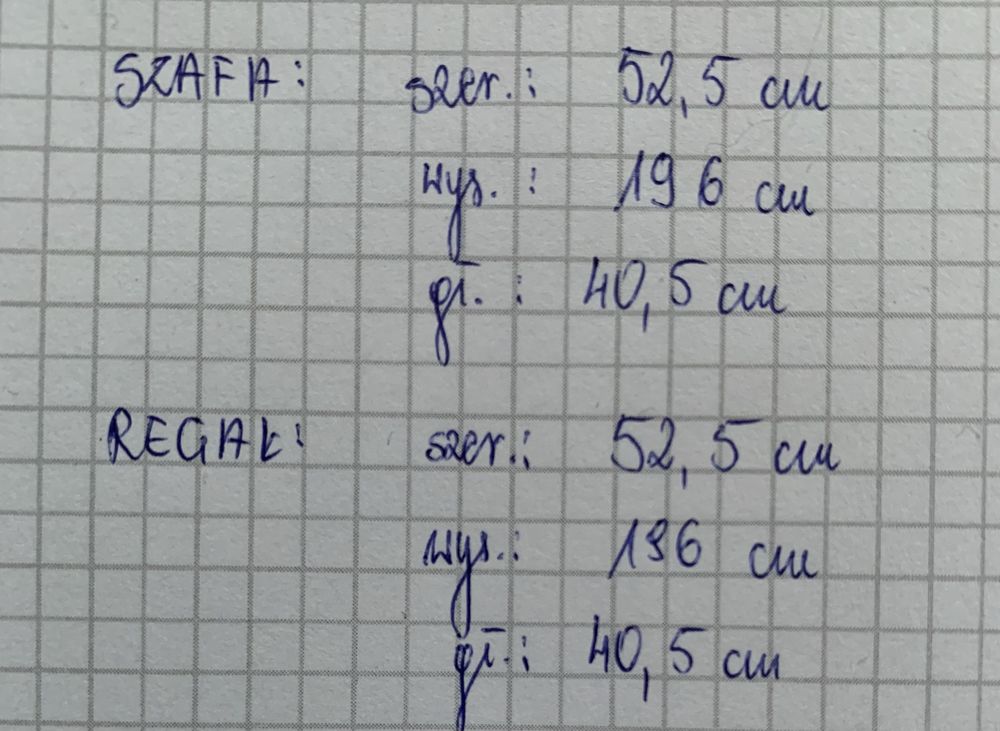 SZAFA: szer.: 52,5 cm
wys.: 196 cm
gł.: 40,5 cm
REGAŁ: szer.: 52,5 cm
wys.: 196 cm
gł.: 40,5 cm